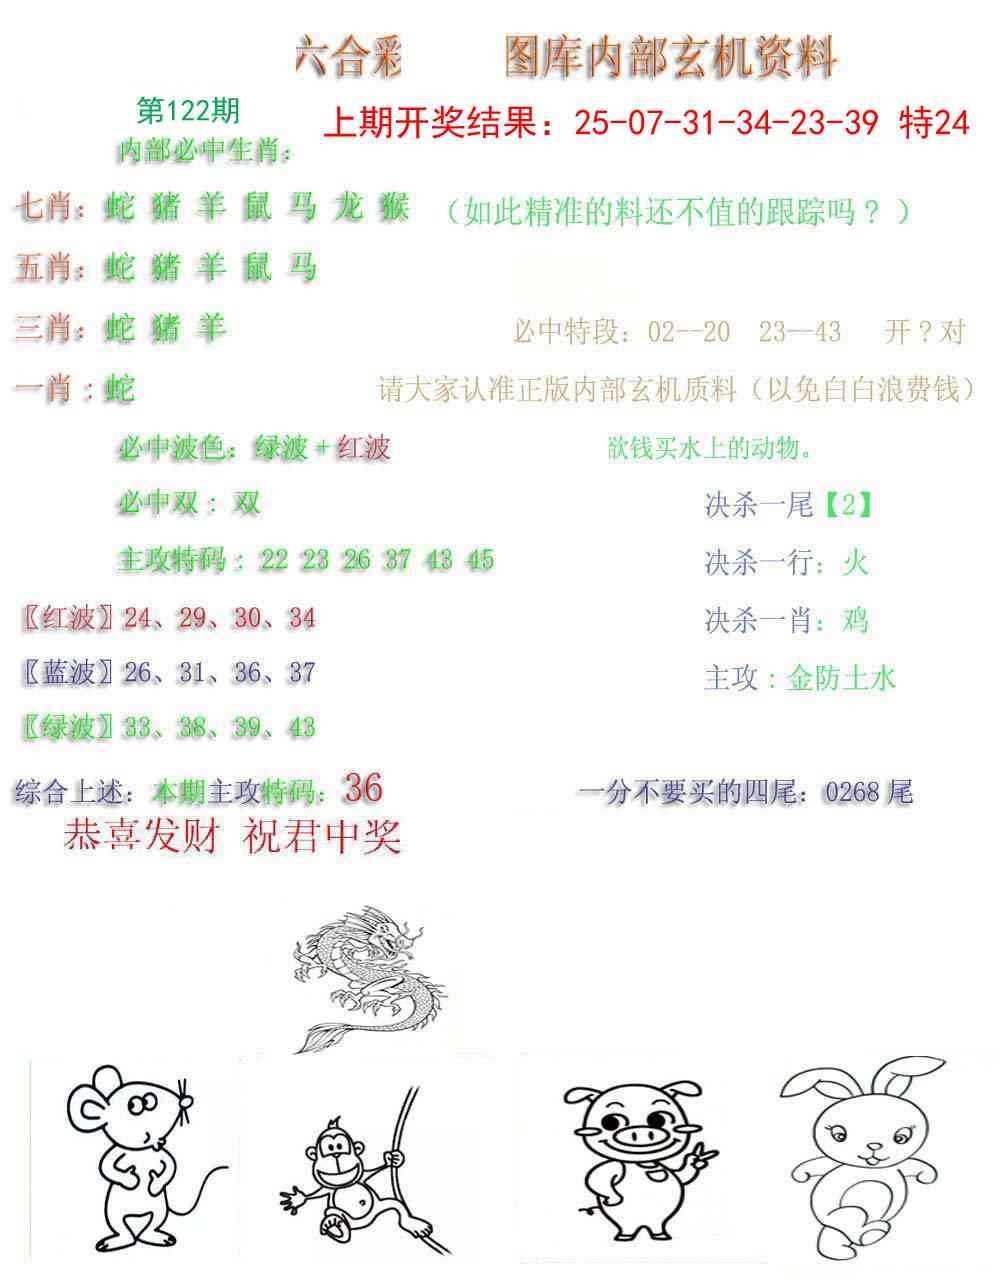 六合彩 图库内部玄机资料
第122期
上期开奖结果：25-07-31-34-23-39 特24
内部必中生肖：
七肖：蛇 猪 羊 鼠 马 龙 猴 （如此精准的料还不值的跟踪吗？）
五肖：蛇 猪 羊 鼠 马
三肖：蛇 猪 羊 必中特段：02--20 23--43 开？对
一肖：蛇 请大家认准正版内部玄机质料（以免白白浪费钱）
必中波色：绿波+红波 欲钱买水上的动物。
必中双：双 决杀一尾【2】
主攻特码：22 23 26 37 43 45 决杀一行：火
〖红波〗24、29、30、34 决杀一肖：鸡
〖蓝波〗26、31、36、37 主攻：金防土水
〖绿波〗33、38、39、43
综合上述：本期主攻特码：36 一分不要买的四尾：0268尾
恭喜发财 祝君中奖